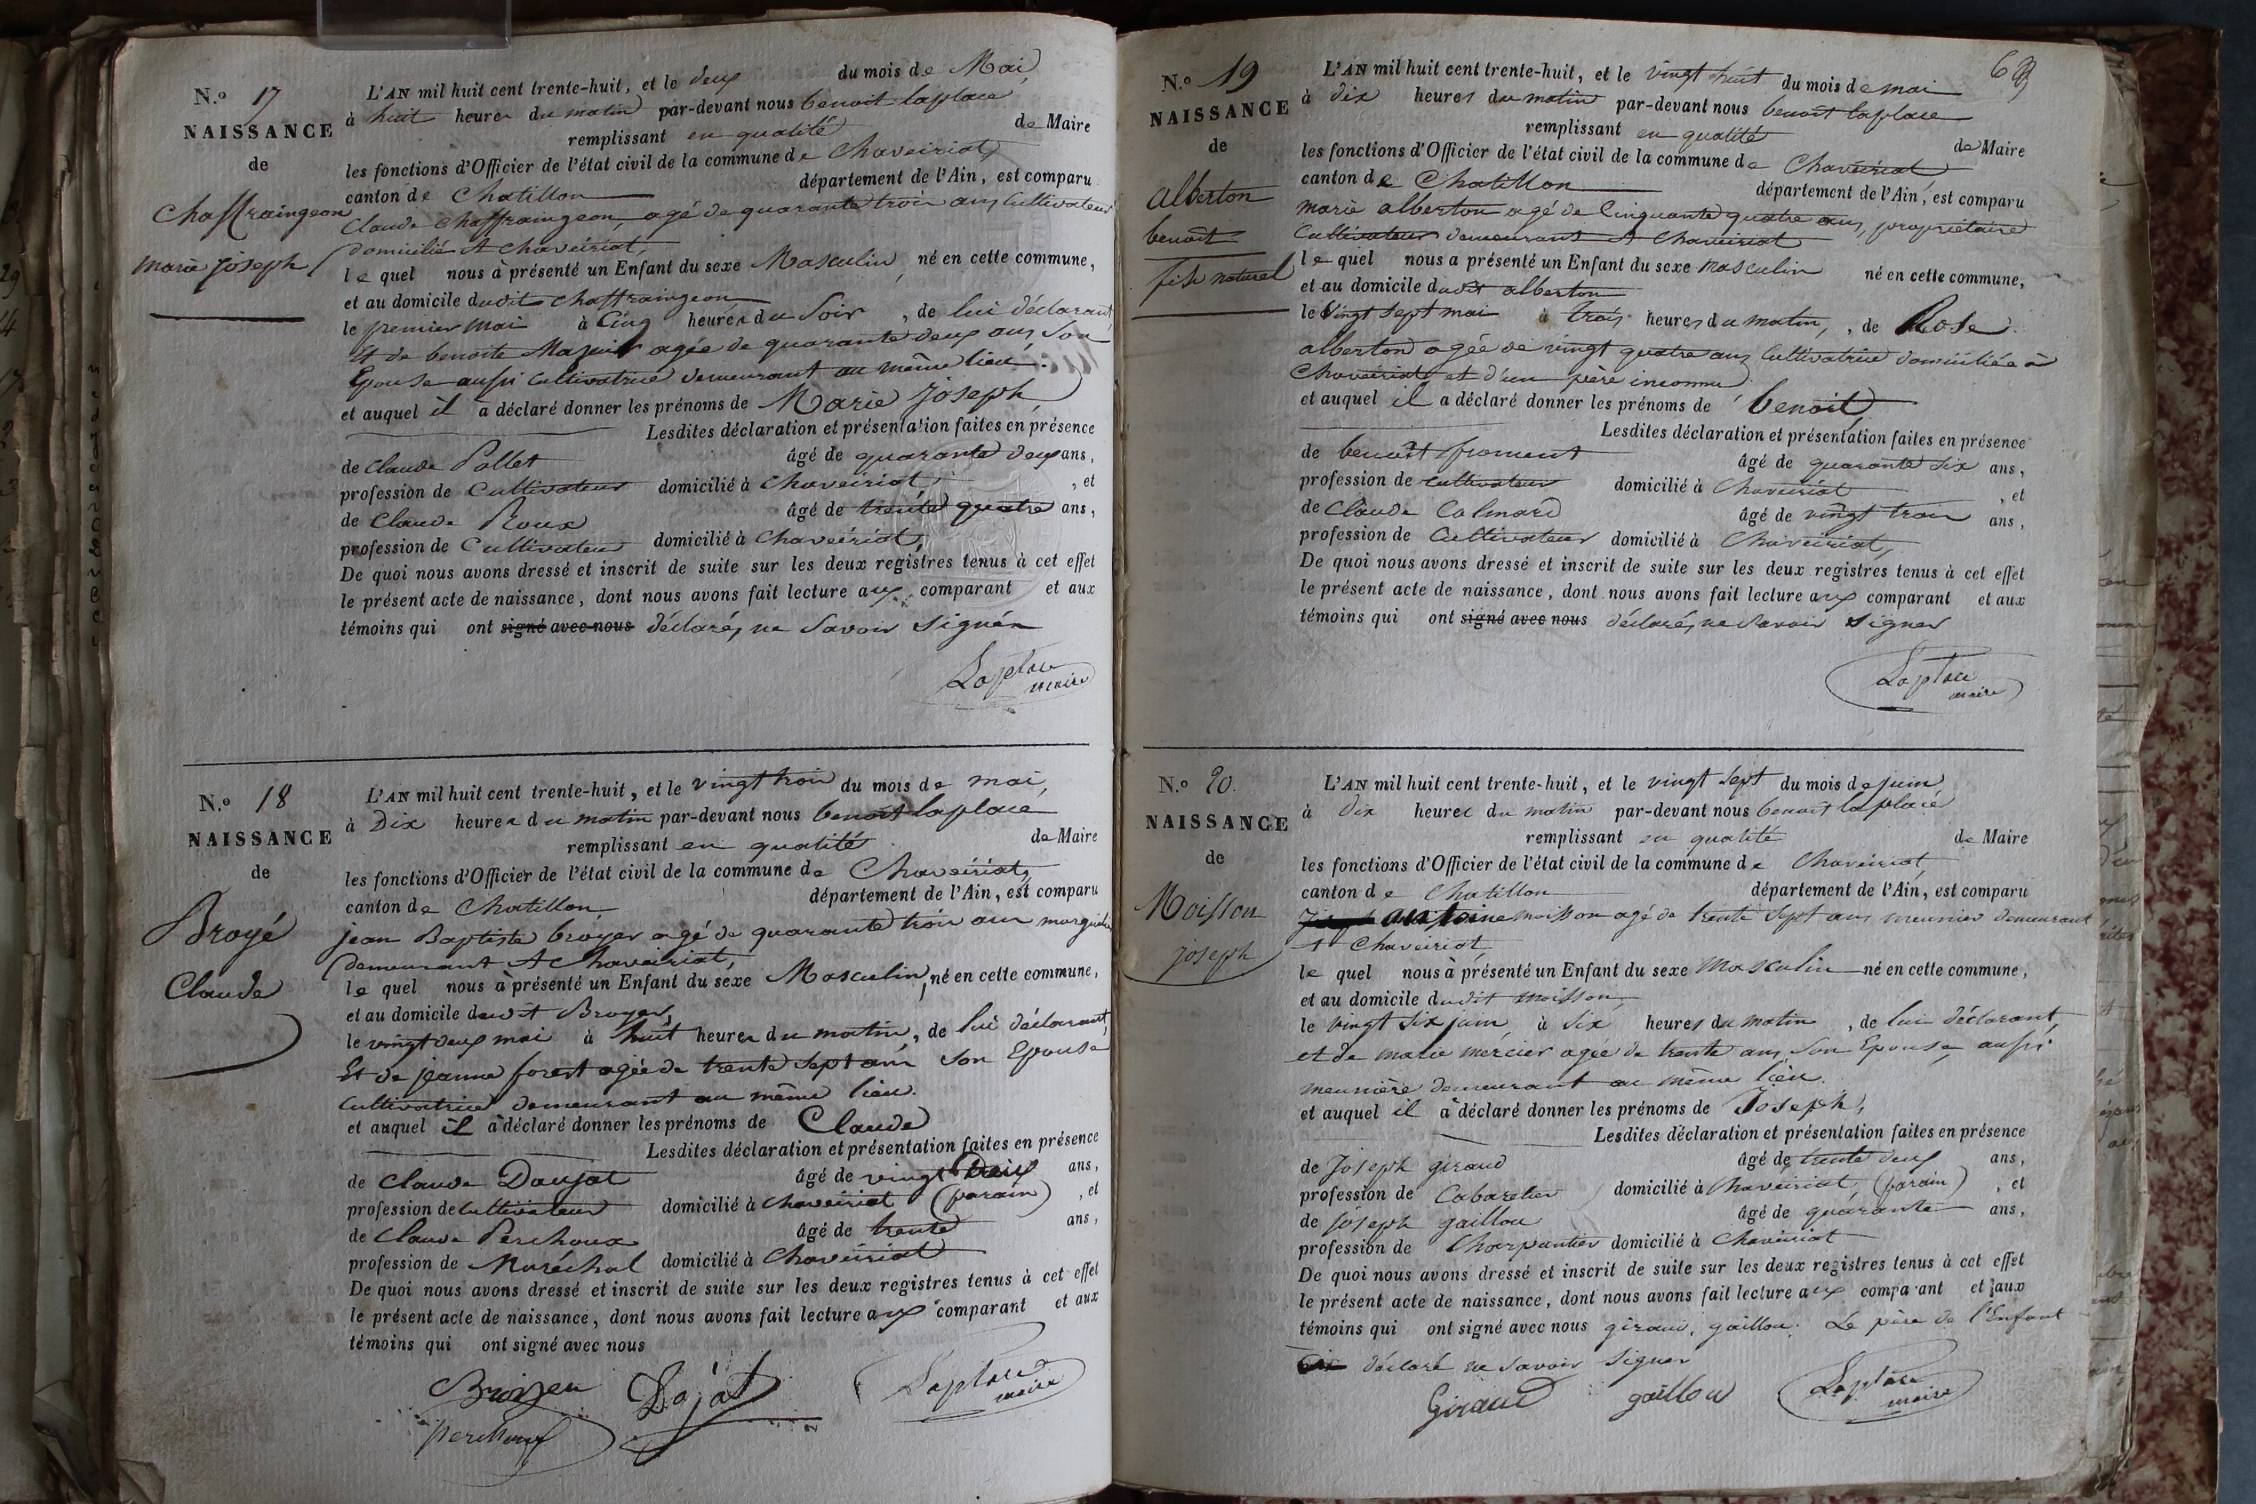 N.o 17
NAISSANCE
de
Chaffraingeon
marie joseph
L'AN mil huit cent trente-huit, et le deux du mois de Mai
à huit heures du matin par-devant nous benoit laplace
remplissant en qualité de Maire
les fonctions d'Officier de l'état civil de la commune de Chaveiriat,
canton de Chatillon département de l'Ain, est comparu
Claude Chaffraingeon, agé de quarante trois ans, Cultivateur
domicilié A Chaveiriat,
le quel nous à présenté un Enfant du sexe Masculin, né en cette commune,
et au domicile dudit Chaffraingeon
le premier mai à Cinq heures du Soir, de lui déclarant,
Et de benoite Mazuir agée de quarante deux ans, Son
Epouse aussi Cultivatrice demeurant au même lieu.
et auquel il à déclaré donner les prénoms de Marie Joseph,
Lesdites déclaration et présentation faites en présence
de Claude Pollet âgé de quarante deux ans,
profession de Cultivateur domicilié à Chaveiriat, et
de Claude Roux âgé de trente quatre ans,
profession de Cultivateur domicilié à Chaveiriat,
De quoi nous avons dressé et inscrit de suite sur les deux registres tenus à cet effet
le présent acte de naissance, dont nous avons fait lecture aux comparant et aux
témoins qui ont signé avec nous déclaré, ne Savoir Signér
Laplace
maire
N.o 18
NAISSANCE
de
Broyé
Claude
L'AN mil huit cent trente-huit, et le vingt trois du mois de mai,
à Dix heures du matin par-devant nous benoit laplace
remplissant en qualité de Maire
les fonctions d'Officier de l'état civil de la commune de Chaveiriat,
canton de Chatillon département de l'Ain, est comparu
jean Baptiste broyer agé de quarante trois ans
demeurant A Chaveiriat,
le quel nous à présenté un Enfant du sexe Masculin, né en cette commune,
et au domicile dudit Broyer,
le vingt deux mai à huit heures du matin, de lui déclarant,
Et de jeanne forest agée de trente sept ans Son Epouse
Cultivatrice demeurant au même lieu.
et auquel il à déclaré donner les prénoms de Claude
Lesdites déclaration et présentation faites en présence
de Claude Doujat âgé de vingt ans,
profession de Cultivateur domicilié à Chaveiriat (parain), et
de Claude Perchoux âgé de trente ans,
profession de Maréchal domicilié à Chaveiriat
De quoi nous avons dressé et inscrit de suite sur les deux registres tenus à cet effet
le présent acte de naissance, dont nous avons fait lecture aux comparant et aux
témoins qui ont signé avec nous
Broyer Dojat Laplace
maire
perchoux
N.o 19
NAISSANCE
de
Alberton
benoit
fils naturel
L'AN mil huit cent trente-huit, et le vingt huit du mois de mai
à dix heures du matin par-devant nous benoit laplace
remplissant en qualité de Maire
les fonctions d'Officier de l'état civil de la commune de Chaveiriat
canton de Chatillon département de l'Ain, est comparu
marie alberton agé de Cinquante quatre ans, propriétaire
Cultivateur demeurant A Chaveiriat
le quel nous a présenté un Enfant du sexe masculin né en cette commune,
et au domicile dudit alberton
le Vingt sept mai à trois heures du matin, de Rose
alberton agée de vingt quatre ans Cultivatrice domiciliée à
Chaveiriat et d'un père inconnu
et auquel il a déclaré donner les prénoms de benoit
Lesdites déclaration et présentation faites en présence
de benoît froment âgé de quarante six ans,
profession de cultivateur domicilié à Chaveiriat, et
de Claude Calmard âgé de vingt trois ans,
profession de Cultivateur domicilié à Chaveiriat,
De quoi nous avons dressé et inscrit de suite sur les deux registres tenus à cet effet
le présent acte de naissance, dont nous avons fait lecture aux comparant et aux
témoins qui ont signé avec nous déclaré, ne Savoir Signer
Laplace
maire
N.o 20.
NAISSANCE
de
Moisson
joseph
L'AN mil huit cent trente-huit, et le vingt sept du mois de juin
à dix heures du matin par-devant nous benoit laplace
remplissant en qualité de Maire
les fonctions d'Officier de l'état civil de la commune de Chaveiriat,
canton de Chatillon département de l'Ain, est comparu
antoine moisson agé de trente sept ans meunier demeurant
A Chaveiriat,
le quel nous à présenté un Enfant du sexe masculin né en cette commune,
et au domicile dudit moisson,
le vingt six juin à six heures du matin, de lui déclarant,
et de marie mércier agée de trente ans, Son Epouse, aussi
meunière demeurant au même lieu.
et auquel il à déclaré donner les prénoms de Joseph,
Lesdites déclaration et présentation faites en présence
de Joseph giraud âgé de trente deux ans,
profession de Cabaretier domicilié à Chaveiriat, (parain), et
de joseph gaillou âgé de quarante ans,
profession de Charpentier domicilié à Chaveiriat
De quoi nous avons dressé et inscrit de suite sur les deux registres tenus à cet effet
le présent acte de naissance, dont nous avons fait lecture aux comparant et aux
témoins qui ont signé avec nous giraud, gaillou. Le père de l'Enfant
déclaré ne Savoir Signer
Giraud gaillou Laplace
maire